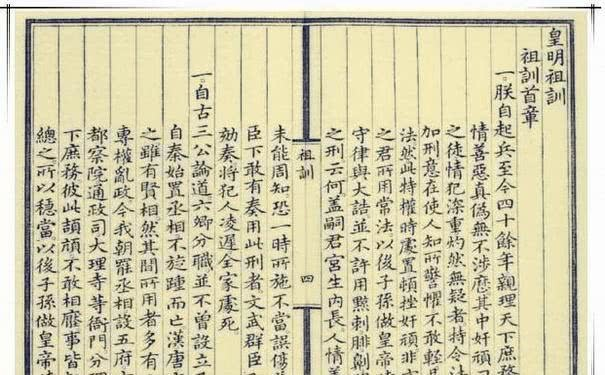 皇明祖訓
祖訓首章
一。朕自起兵至今四十餘年親理天下庶務
情善惡真偽無不涉歷其中奸頑刁
之徒情犯深重灼然無疑者特令法
加刑意在使人知所警懼不敢輕易
法然此特權時處置頓挫奸頑非
之君所用常法以後子孫做皇帝時
守律與大誥並不許用黥刺腓劓
之刑云何蓋嗣君宮生內長人情善
未能周知恐一時所施不當誤傷
臣下敢有奏用此刑者文武群臣
劾奏將犯人凌遲全家處死
祖訓
四
一。自古三公論道六卿分職並不曾設立
自秦始置丞相不旋踵而亡漢唐
之雖有賢相然其間所用者多有
專權亂政今我朝罷丞相設五府
都察院通政司大理寺等衙門分理
下庶務彼此頡頏不敢相壓事皆
總之所以穩當以後子孫做皇帝時